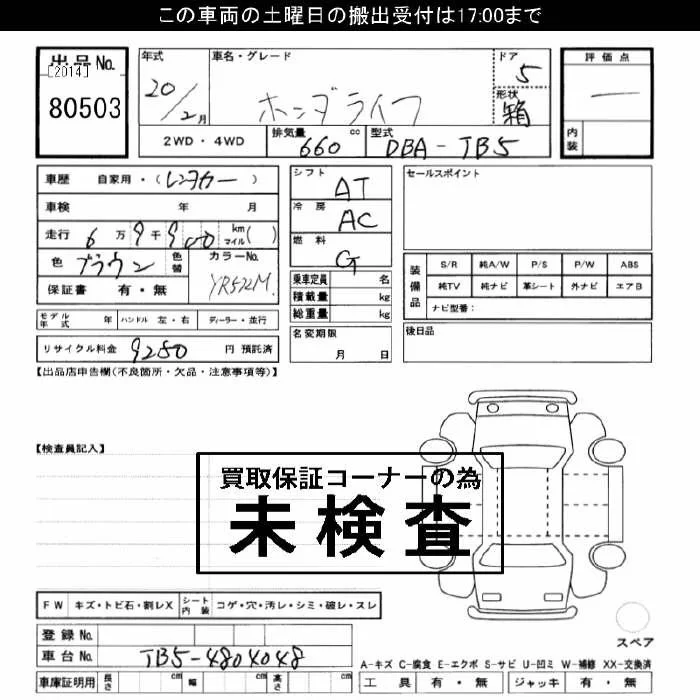 この車両の土曜日の搬出受付は17:00まで
出品No.
[2014]
80503
年式
20/2月
車名・グレード
ホンダライフ
ドア
5
形状
箱
評価点
—
内装
2WD・4WD
排気量 660 cc
型式 DBA-TB5
車歴 自家用・(レンタカー)
車検 年 月
走行 6万9千900 km マイル( )
色 ブラウン 色替
カラーNo.
YR572M
保証書 有・無
モデル年式 年 ハンドル 左・右 ディーラー・並行
リサイクル料金 9280 円 預託済
シフト AT
冷房 AC
燃料 G
乗車定員 名
積載量 kg
総重量 kg
名変期限
月 日
セールスポイント
装備品
S/R 純A/W P/S P/W ABS
純TV 純ナビ 革シート 外ナビ エアB
ナビ型番:
後日品
【出品店申告欄(不良箇所・欠品・注意事項等)】
【検査員記入】
買取保証コーナーの為
未検査
FW キズ・トビ石・割レX シート内装 コゲ・穴・汚レ・シミ・破レ・スレ
登録No.
車台No. TB5-4804048
車庫証明用 長さ cm 幅 cm 高さ cm
スペア
A-キズ C-腐食 E-エクボ S-サビ U-凹ミ W-補修 XX-交換済
工具 有・無 ジャッキ 有・無